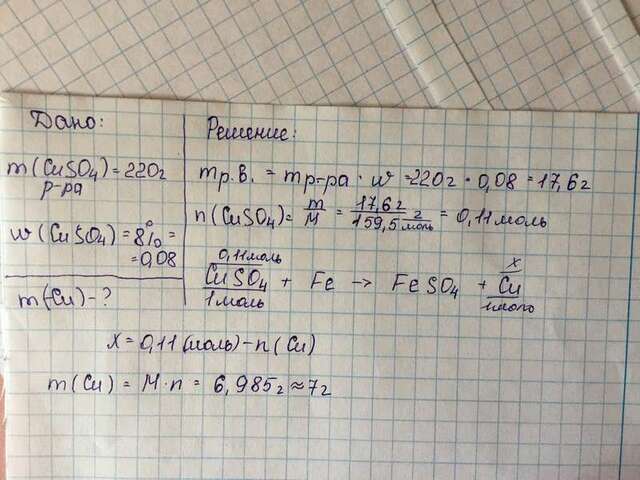 Дано:
m(CuSO₄)=220г
р-ра
w(CuSO₄)=8%=
=0,08
m(Cu)-?
Решение:
mр.в. = mр-ра · w =220г · 0,08 = 17,6г
n(CuSO₄)= m/M = 17,6г/159,5 г/моль = 0,11моль
0,11моль x
CuSO₄ + Fe → FeSO₄ + Cu
1моль 1моль
x = 0,11(моль)-n(Cu)
m(Cu) = M·n = 6,985г≈7г